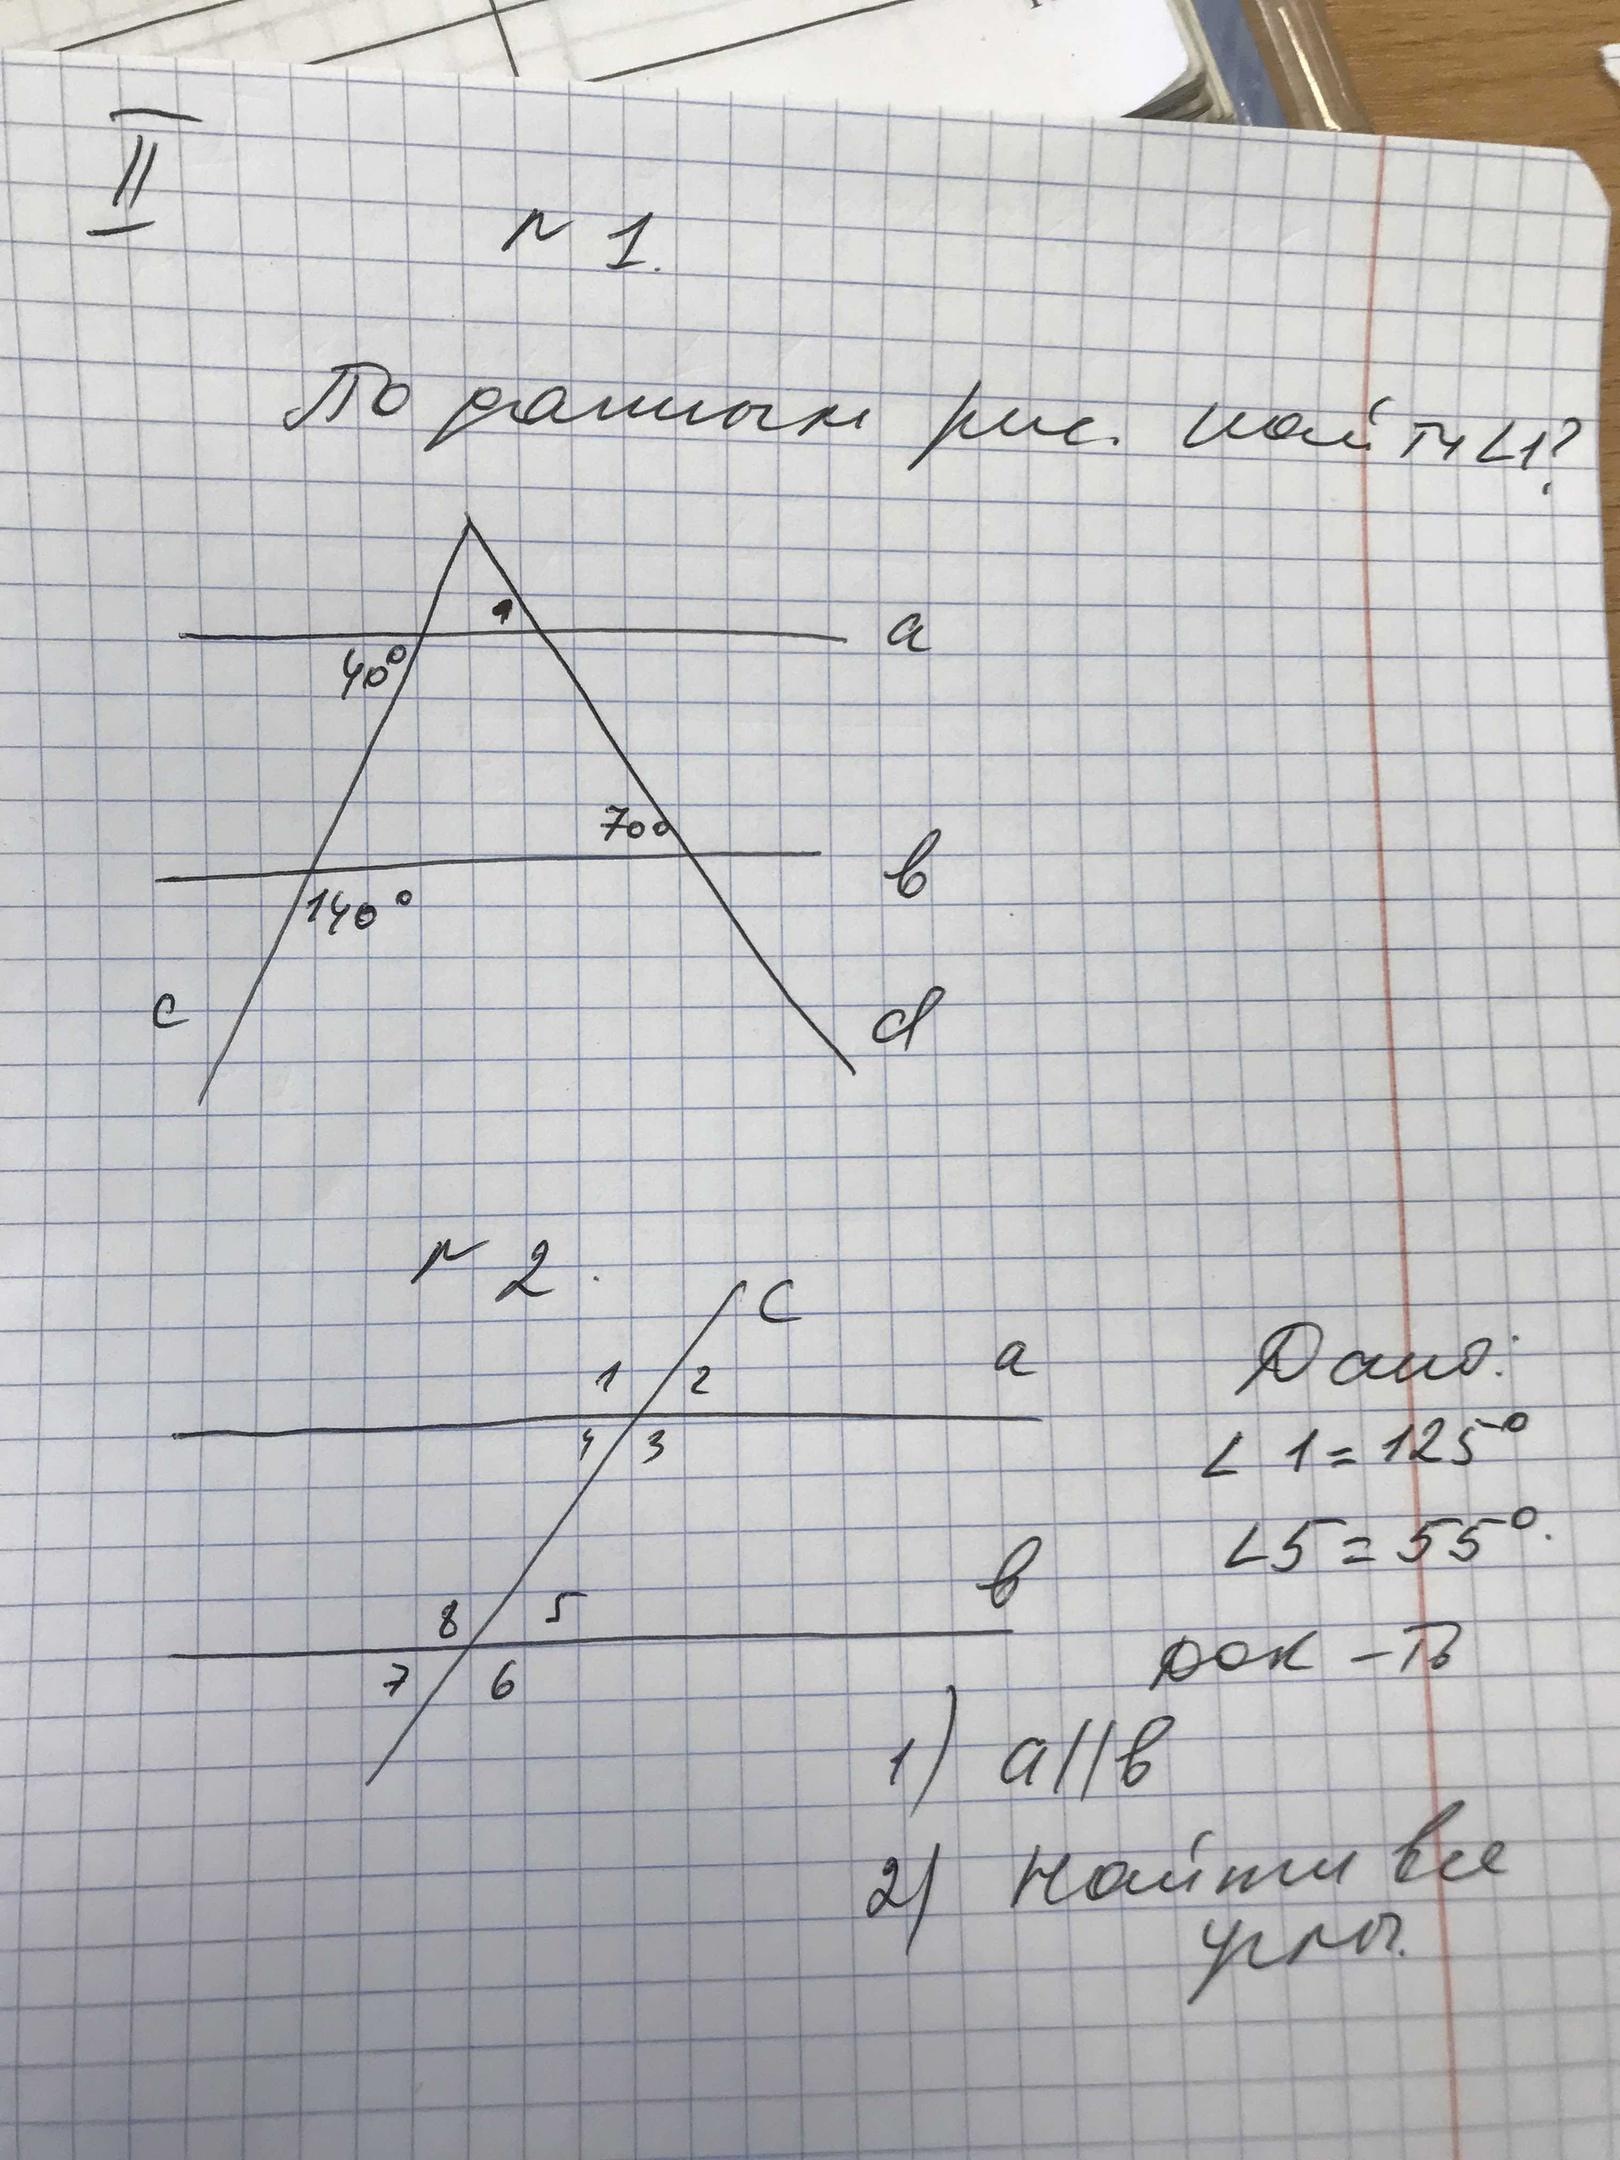 II
N 1.
По данным рис. найти ∠1?
1
a
40°
70°
b
140°
c
d
N 2.
c
1 2
a
4 3
Дано:
∠1 = 125°
∠5 = 55°.
8 5
b
7 6
Док-ть
1) a||b
2) Найти все
углы.